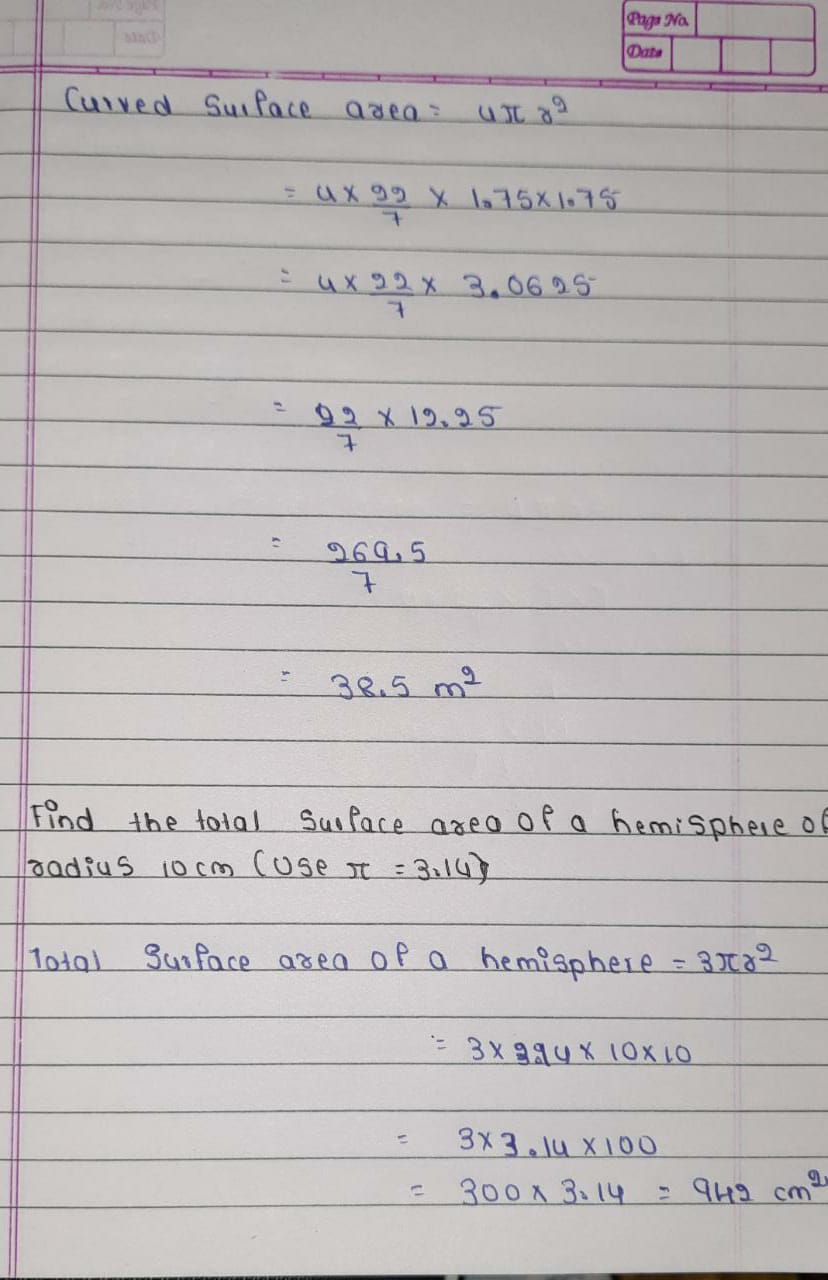 Page No.
Date
Curved Surface area = 4πr²
= 4 × 22/7 × 1.75 × 1.75
= 4 × 22/7 × 3.0625
= 22/7 × 12.25
= 269.5/7
= 38.5 m²
Find the total Surface area of a hemisphere of
radius 10 cm (Use π = 3.14)
Total Surface area of a hemisphere = 3πr²
= 3 × × 10 × 10
= 3 × 3.14 × 100
= 300 × 3.14 = 942 cm²